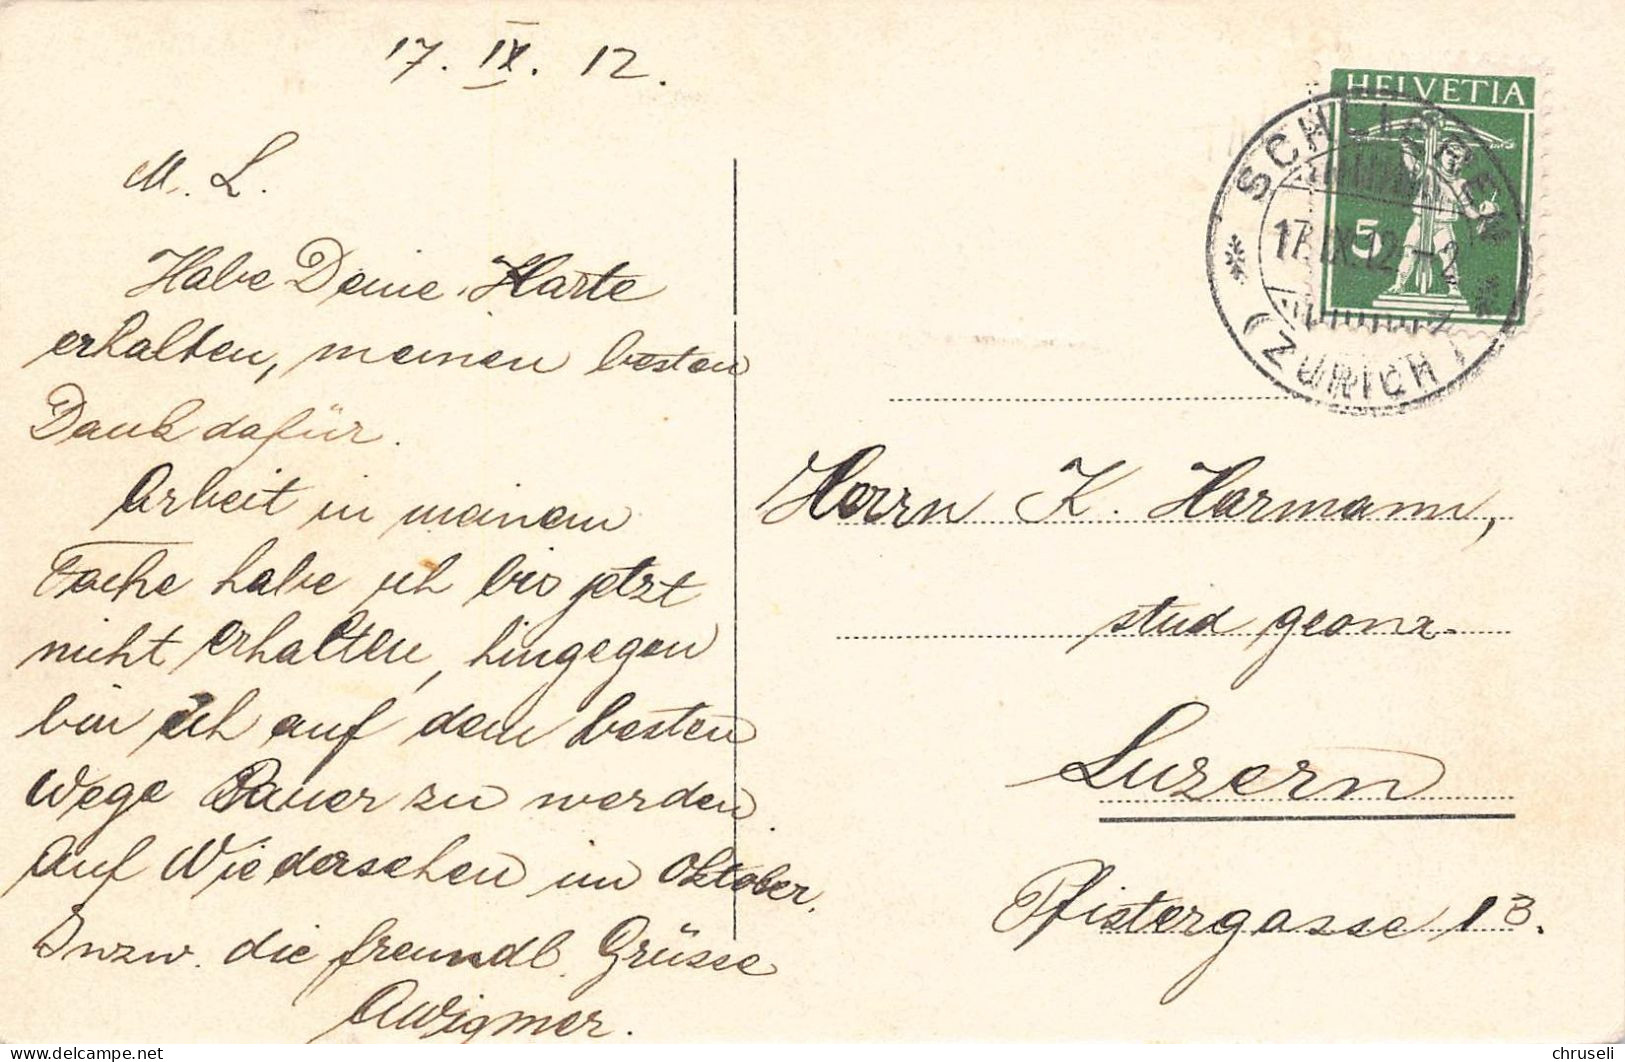 17. IX. 12.
M. L.
Habe Deine Karte
erhalten, meinen besten
Dank dafür.
Arbeit in meinem
Fache habe ich bis jetzt
nicht erhalten, hingegen
bin ich auf dem besten
Wege Bauer zu werden.
Auf Wiedersehen im Oktober.
Inzw. die freundl. Grüsse
HELVETIA
5
SCHLIEREN
17.IX.12.-2
(ZÜRICH)
Herrn K. Harmann,
stud geom.
Luzern
Pfistergasse 13.
chruseli
delcampe.net